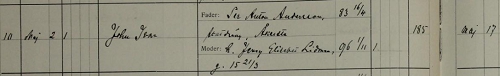 Fader: Per Anton Andersson, 83 16/4
10 Maj 2 1 John Ivar 185 Maj 17
Moder: Jenny Elisabet Lidman, 96 1/11 1
g. 15 21/3